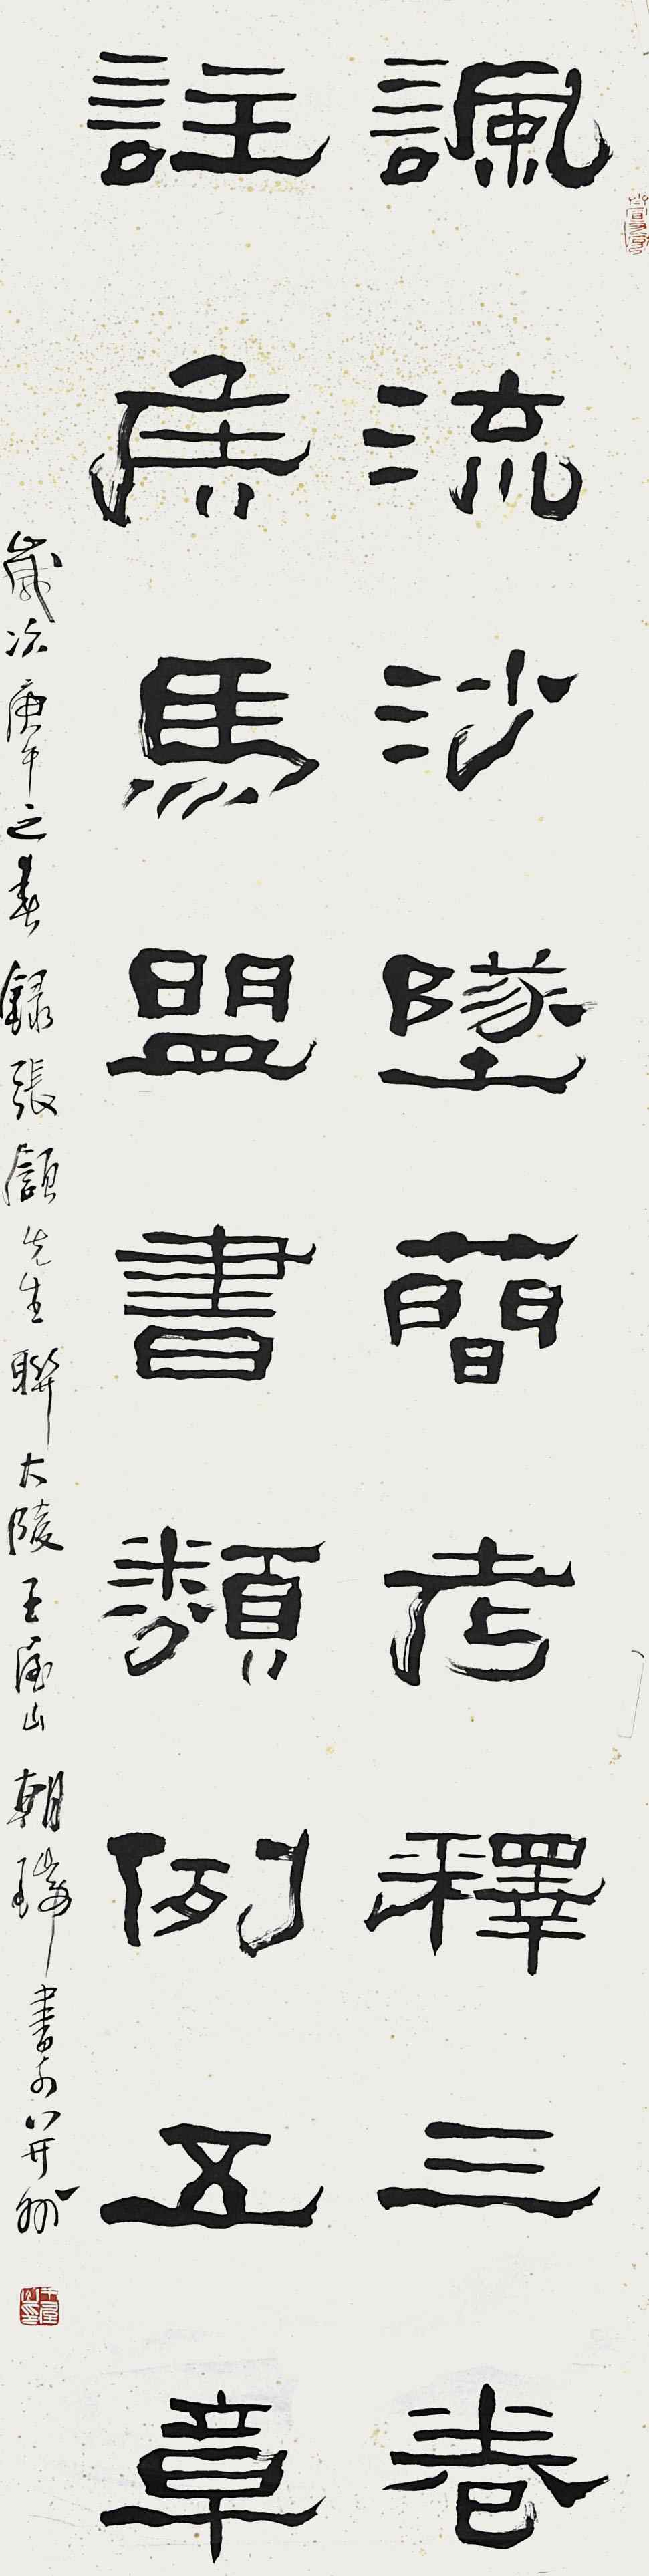 諷流沙墜簡考釋三卷
註侯馬盟書類例五章
歲次庚午之春錄張頷先生聯大陵王屋山朝瑞書於并州